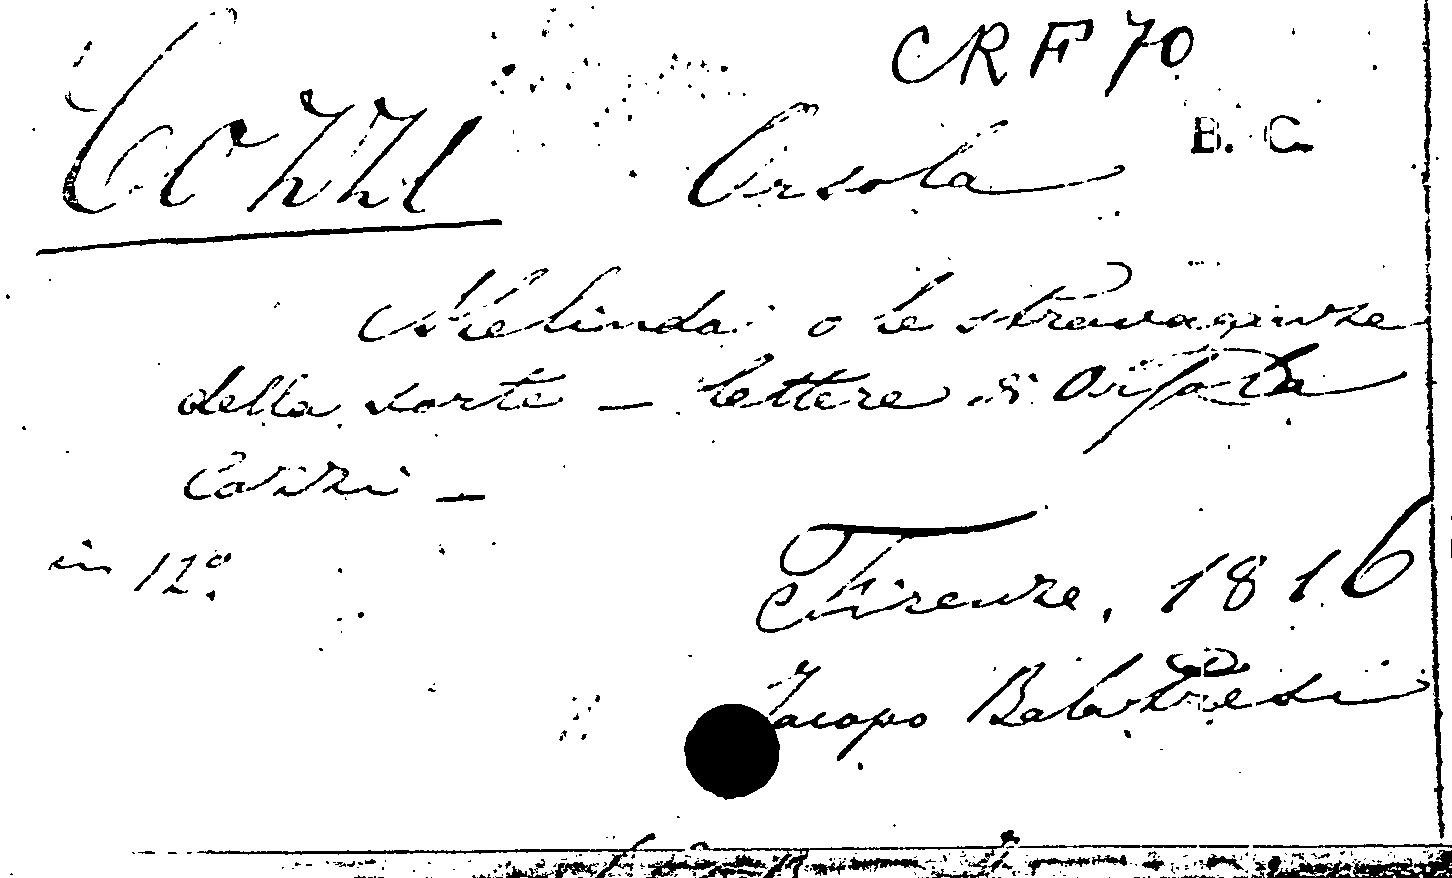 CRF 70
B. C.
Cozzi Orsola
Melinda o le stravaganze
della sorte — lettere di Orsola
Cozzi —
in 12º.
Firenze, 1816
Jacopo Balatresi